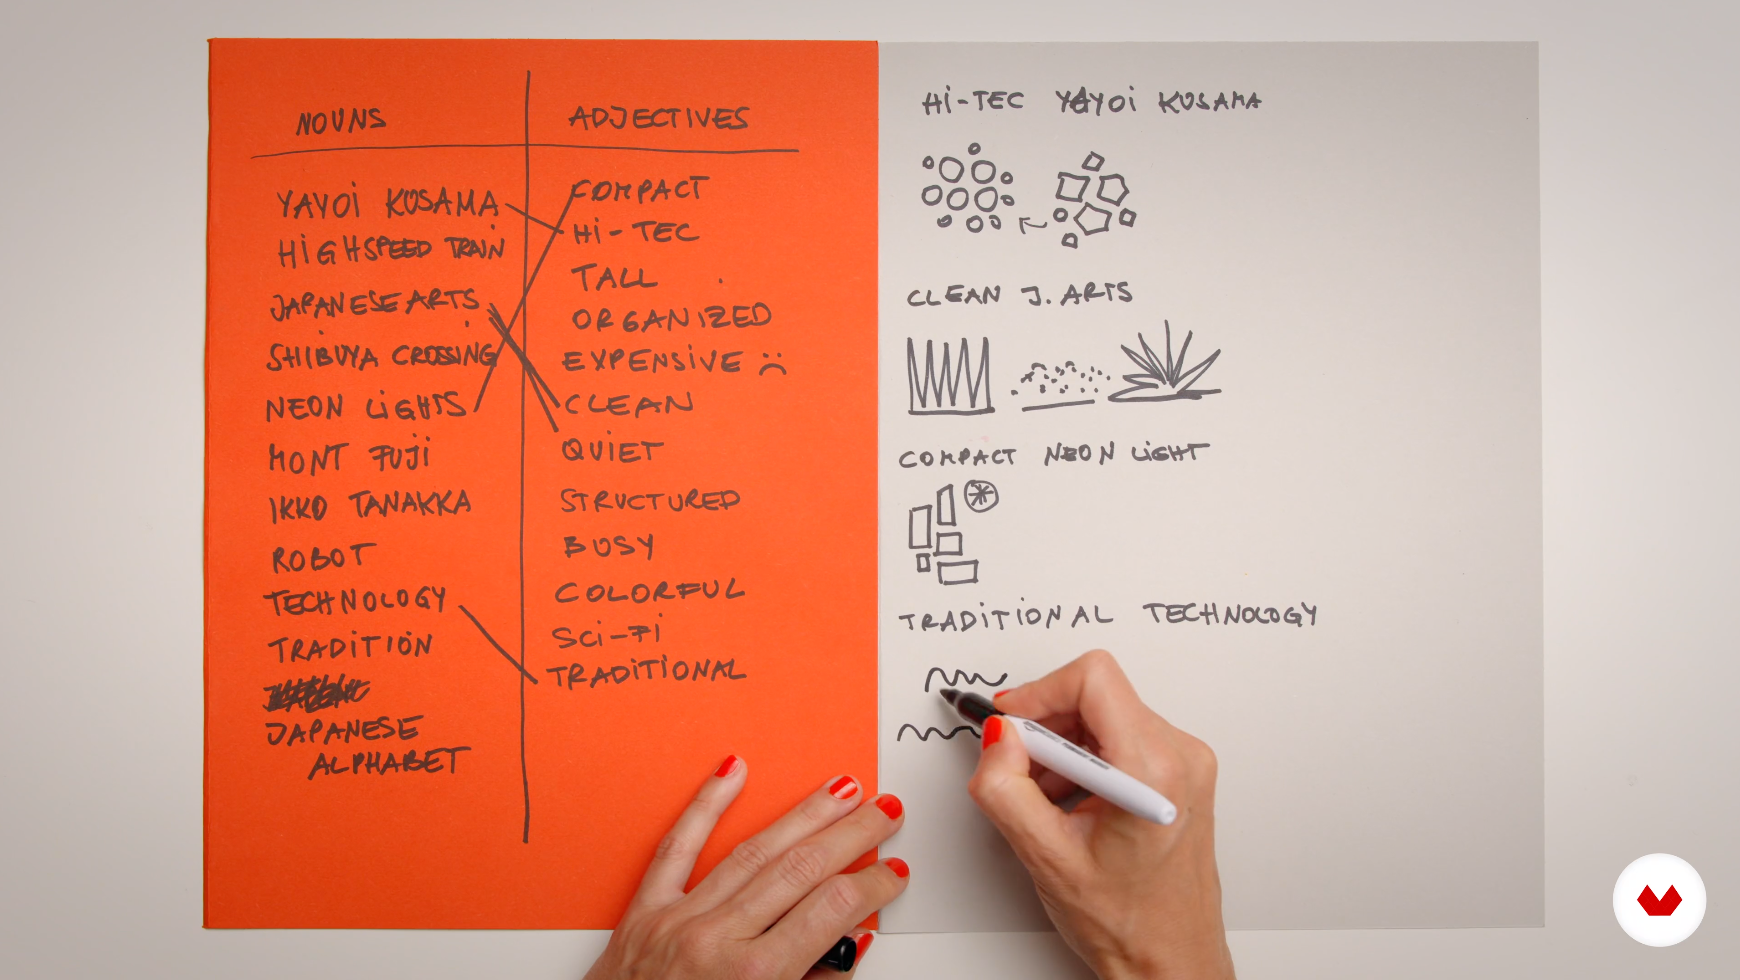 NOUNS
YAYOI KUSAMA
HIGHSPEED TRAIN
JAPANESE ARTS
SHIBUYA CROSSING
NEON LIGHTS
MONT FUJI
IKKO TANAKKA
ROBOT
TECHNOLOGY
TRADITION
JAPANESE
ALPHABET
ADJECTIVES
COMPACT
Hi-TEC
TALL
ORGANIZED
EXPENSIVE :(
CLEAN
QUIET
STRUCTURED
BUSY
COLORFUL
SCI-FI
TRADITIONAL
Hi-TEC YAYOI KUSAMA
CLEAN J. ARTS
COMPACT NEON LIGHT
TRADITIONAL TECHNOLOGY